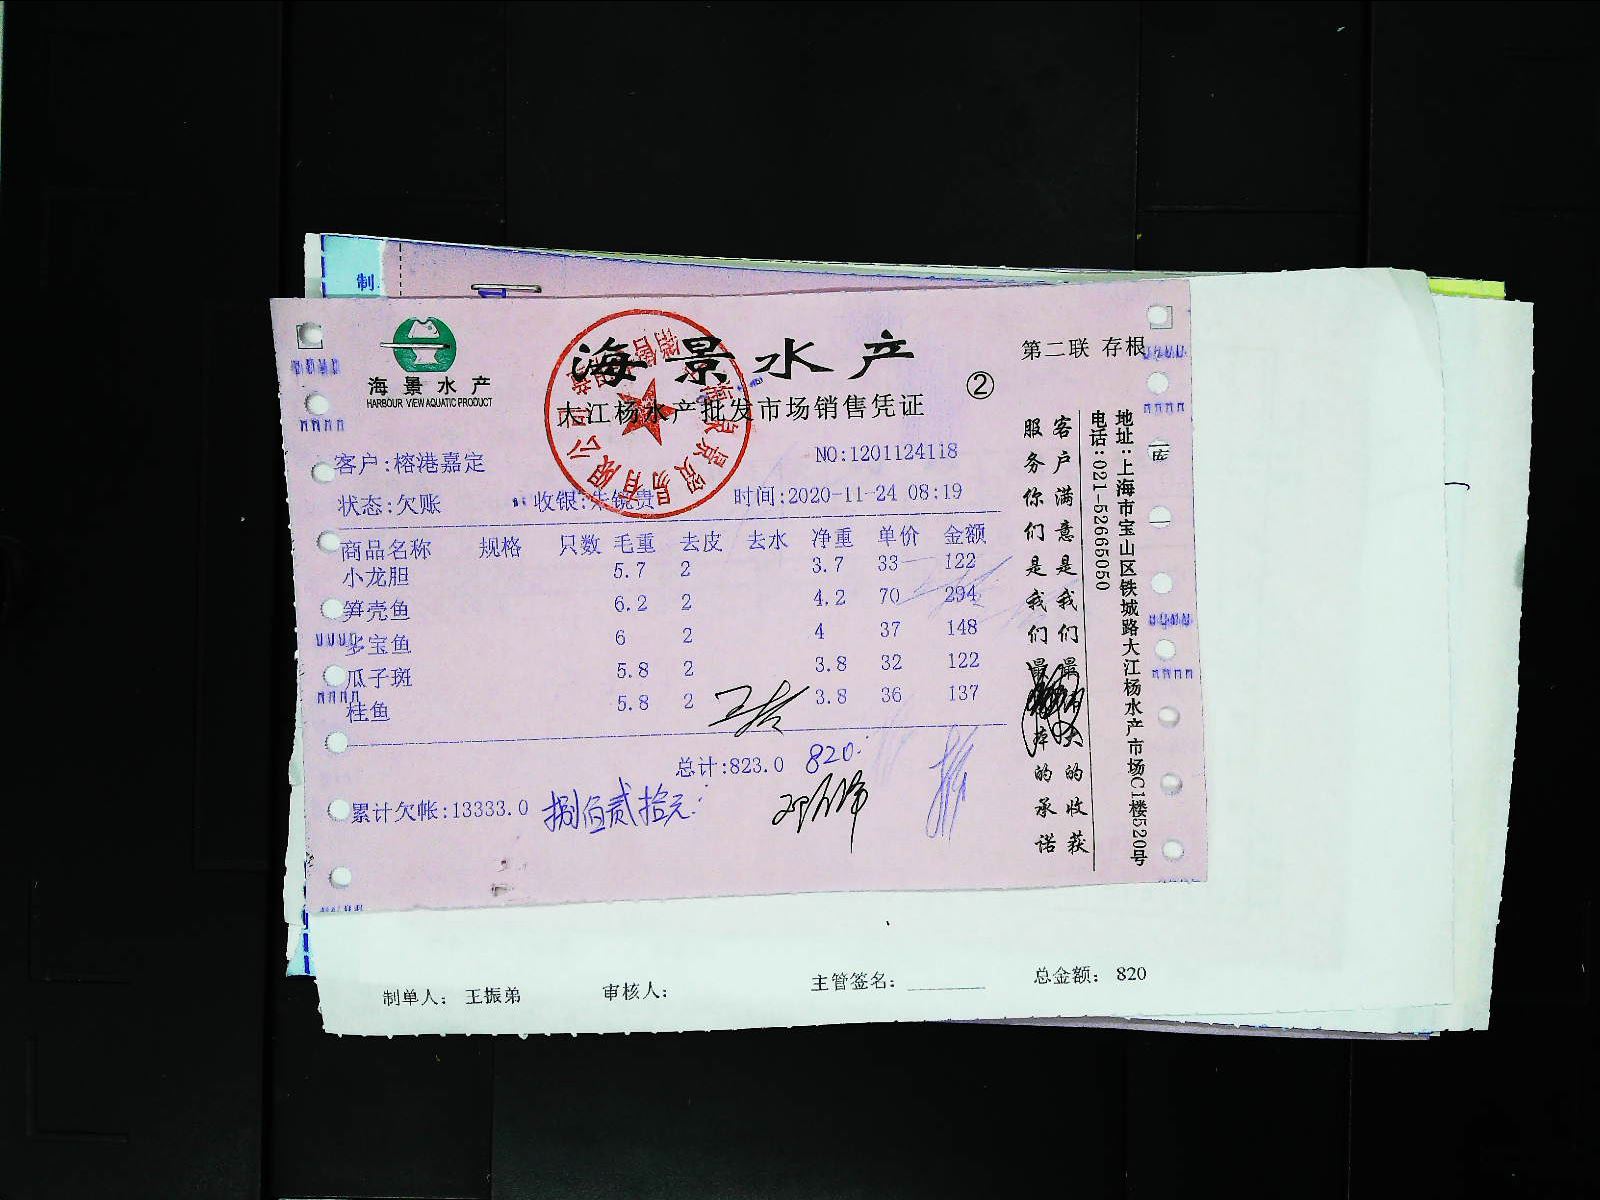 制
海景水产
HARBOUR VIEW AQUATIC PRODUCT
海景水产
大江杨水产批发市场销售凭证
②
第二联 存根
客户:榕港嘉定
NO:1201124118
状态:欠账 收银:朱锐贵 时间:2020-11-24 08:19
商品名称 规格 只数 毛重 去皮 去水 净重 单价 金额
小龙胆 5.7 2 3.7 33 122
笋壳鱼 6.2 2 4.2 70 294
多宝鱼 6 2 4 37 148
瓜子斑 5.8 2 3.8 32 122
桂鱼 5.8 2 3.8 36 137
总计:823.0 820.
累计欠帐:13333.0 捌佰贰拾元
客户满意是我们最大的收获
服务你们是我们最的承诺
地址:上海市宝山区铁城路大江杨水产市场C1楼520号
电话:021-52665050
制单人: 王振弟 审核人: 主管签名: 总金额: 820